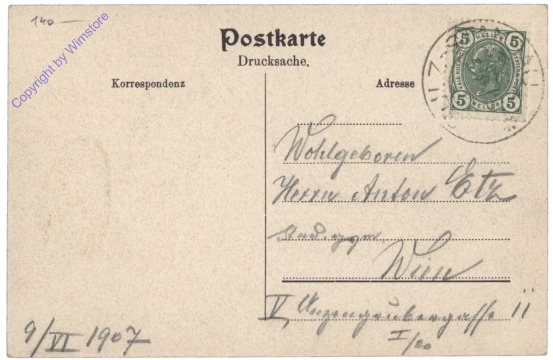 140
Copyright by Wimstore
Postkarte
Drucksache.
Korrespondenz
Adresse
5 5
5 HELLER 5
Wohlgeboren
Herrn Anton Etz
Wien
V, Anzengrubergasse ii
I/20
9/VI 1907